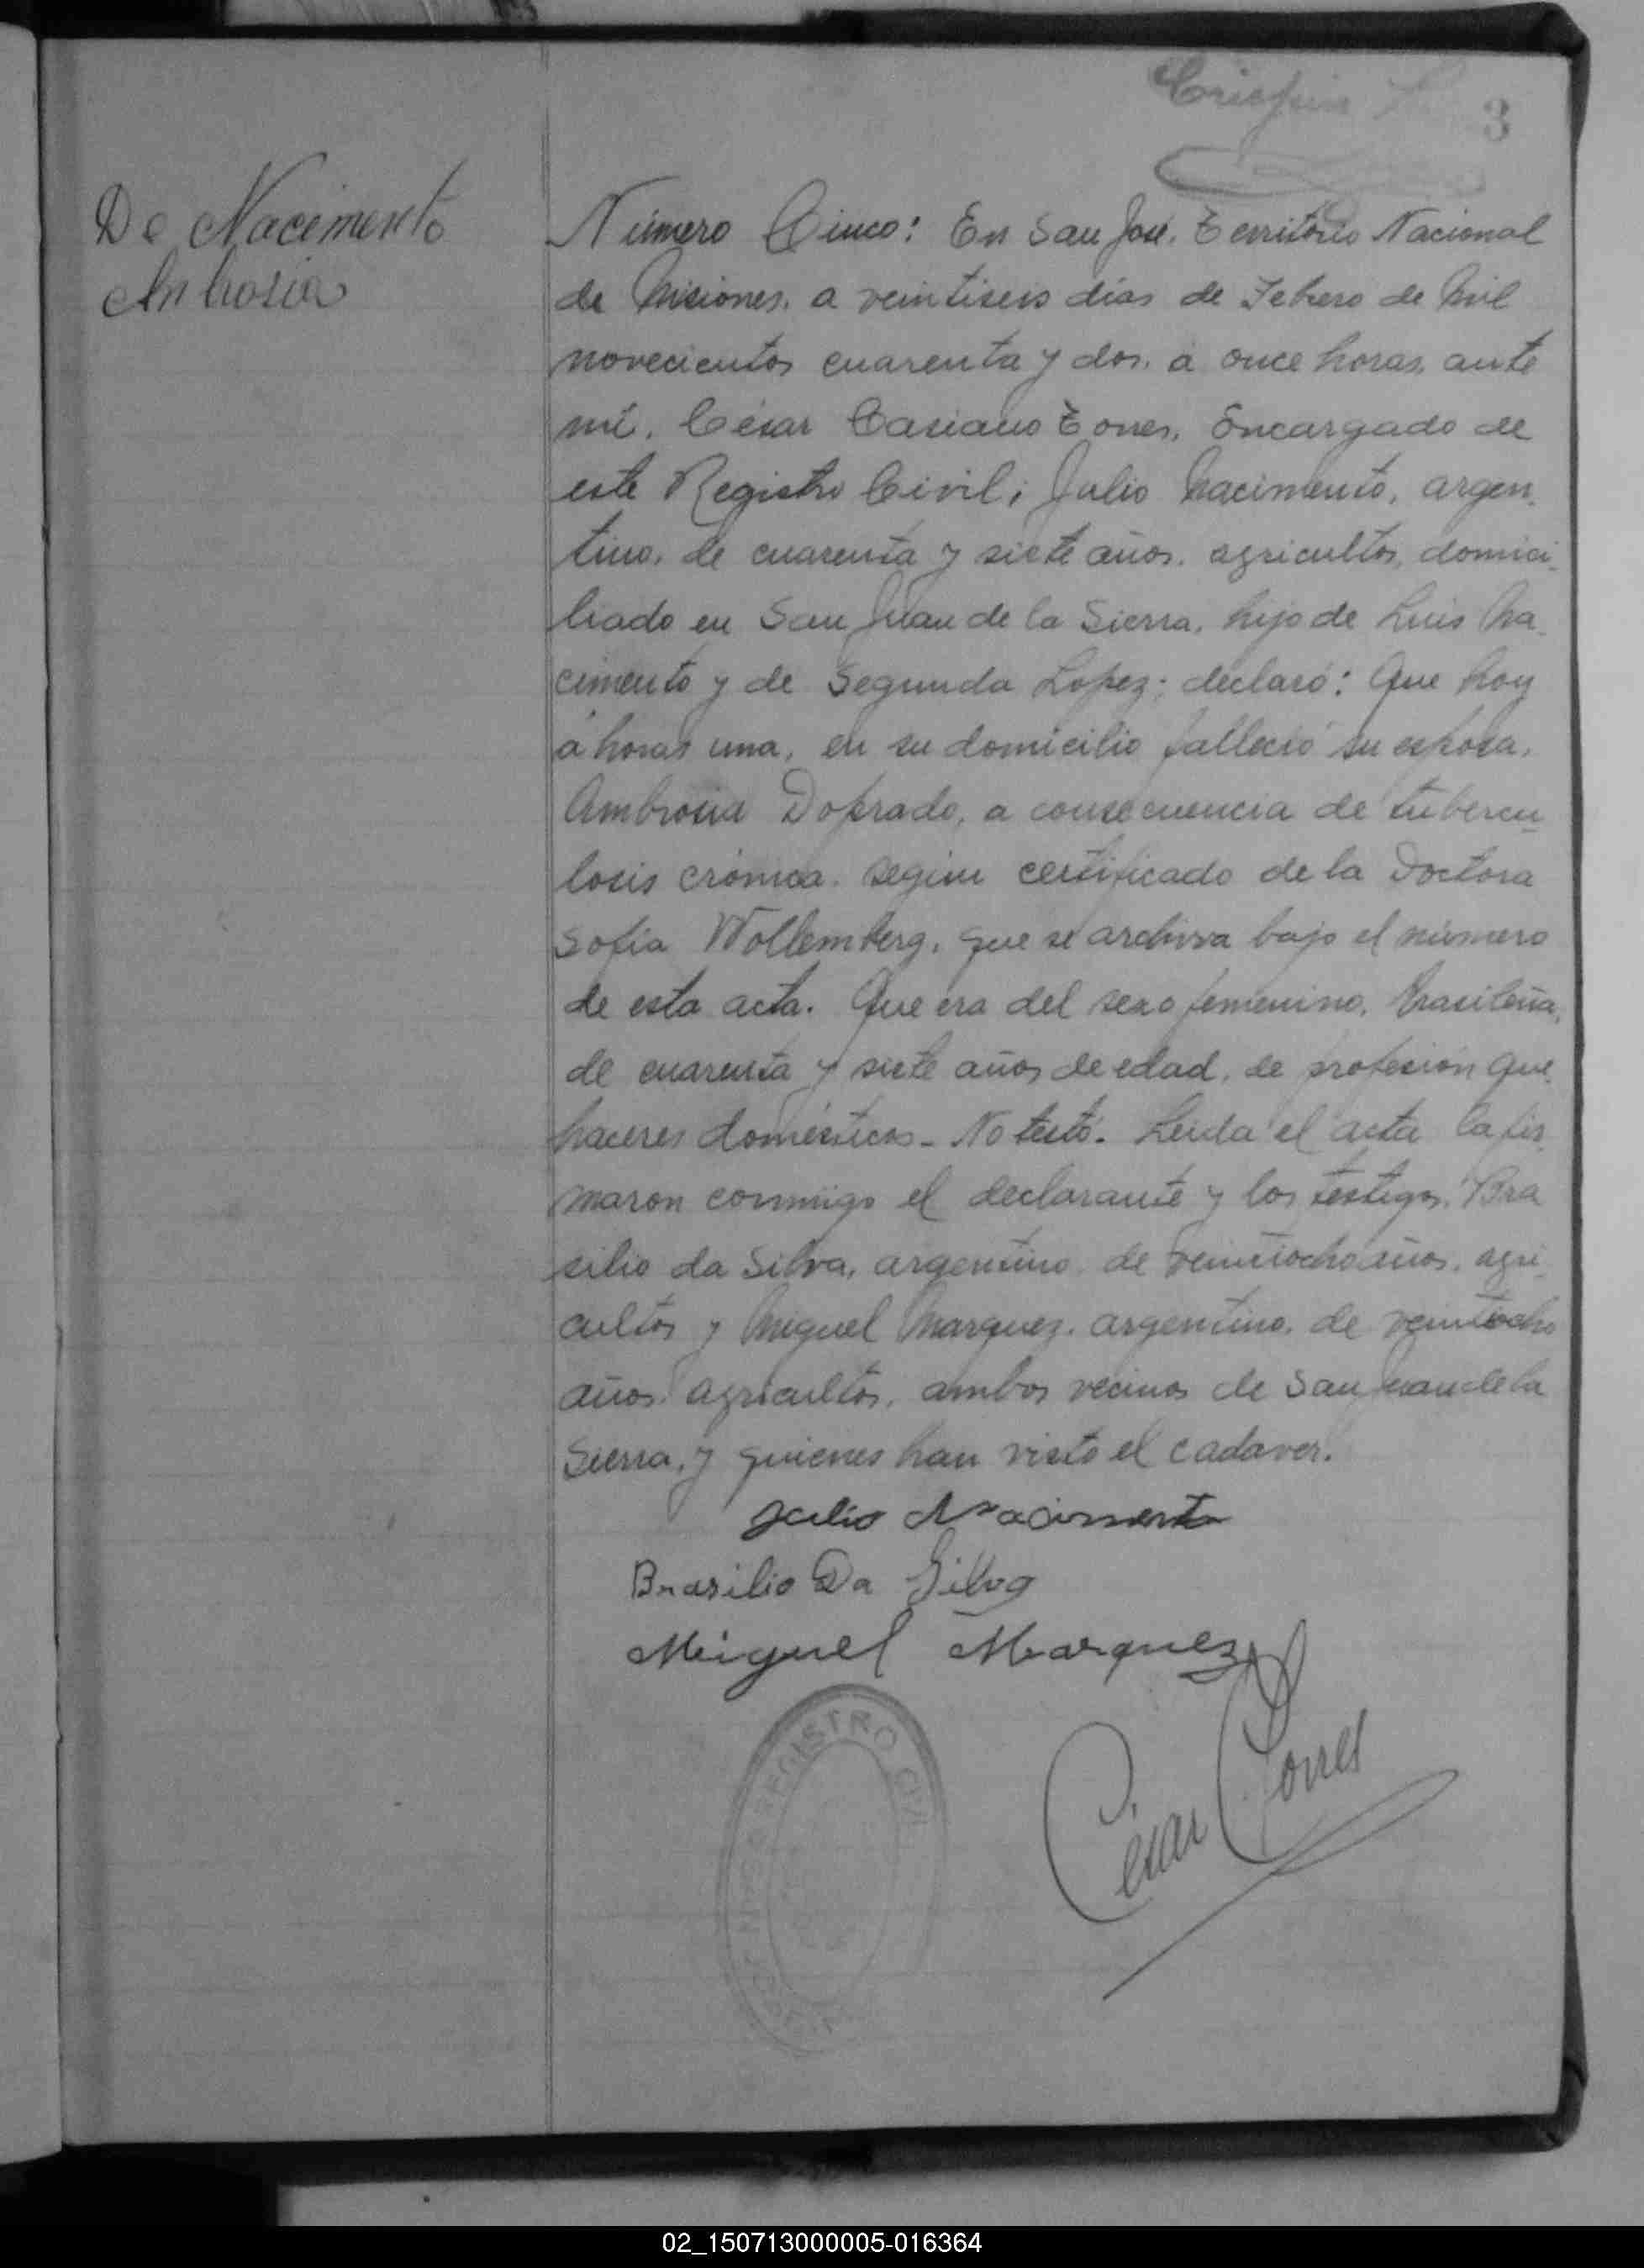 3
De Nacimento
Ambrosia
Número Cinco: En San José, Territorio Nacional
de Misiones, a veintiseis dias de Febrero de mil
novecientos cuarenta y dos, á once horas, ante
mi, César Casiano Torres, Encargado de
este Registro Civil; Julio Nacimento, argen-
tino, de cuarenta y siete años, agricultor, domici-
liado en San Juan de la Sierra, hijo de Luis Na-
cimento y de Segunda Lopez; declaró: Que hoy
á horas una, en su domicilio falleció su esposa,
Ambrosia Doprado, a consecuencia de tubercu-
losis crónica, según certificado de la Doctora
Sofia Wollemberg, que se archiva bajo el número
de esta acta. Que era del sexo femenino, brasileña,
de cuarenta y siete años de edad, de profesión que-
haceres domésticos - No testó. Leida el acta la fir-
maron conmigo el declarante y los testigos, Bra
silio da Silva, argentino, de veintiocho años, agri-
cultor y Miguel Marquez, argentino, de veintiocho
años, agricultor, ambos vecinos de San Juan de la
Sierra, y quienes han visto el cadaver.
Julio Nacimento
Brasilio Da Silva
Miguel Marquez
César Torres
REGISTRO CIVIL
02_150713000005-016364